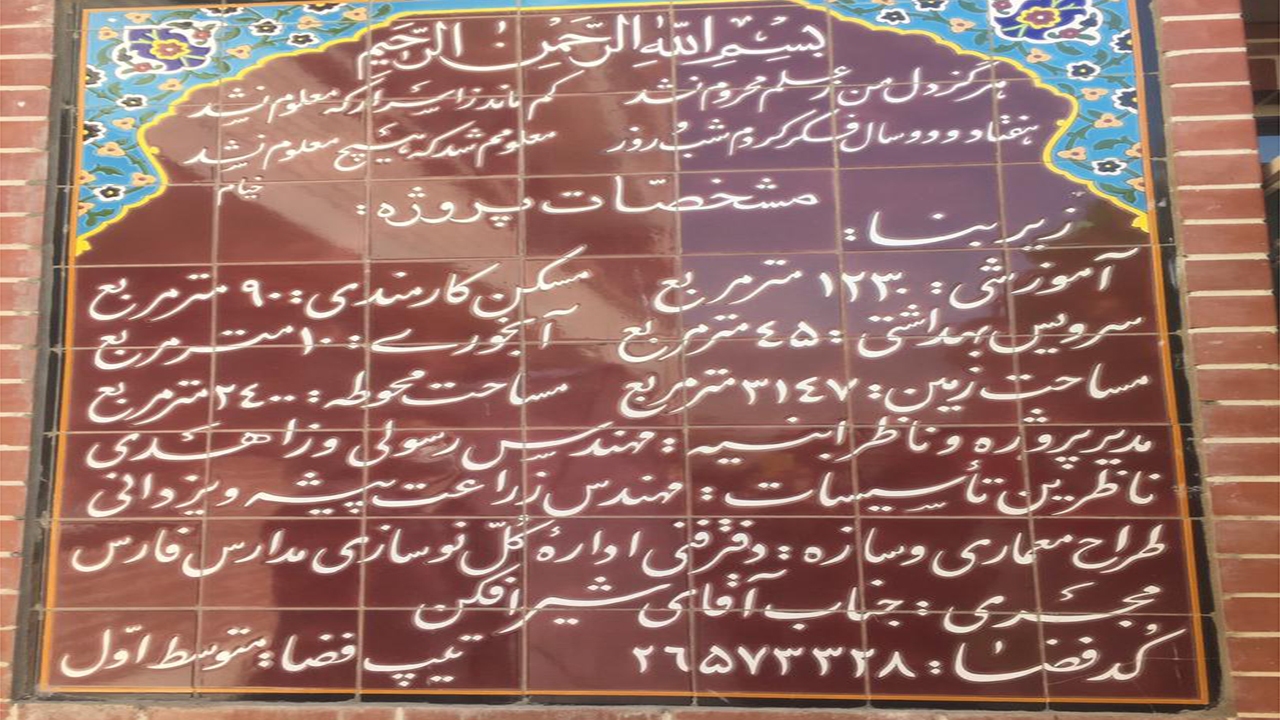 بسم الله الرحمن الرحیم
هرگز دل من ز علم محروم نشد کم ماند ز اسرار که معلوم نشد
هفتاد و دو سال فکر کردم شب و روز معلومم شد که هیچ معلوم نشد
خیام
مشخصّات پروژه:
زیر بنا:
آموزشی: ۱۲۳۰ متر مربع مسکن کارمندی: ۹۰ متر مربع
سرویس بهداشتی: ٤۵ متر مربع آبخوری: ۱۰ متر مربع
مساحت زمین: ۳۱٤۷ متر مربع مساحت محوطه: ۲٤۰۰ متر مربع
مدیر پروژه و ناظر ابنیه: مهندس رسولی و زاهدی
ناظرین تأسیسات: مهندس زراعت پیشه و یزدانی
طراح معماری و سازه: دفتر فنی ادارهٔ کلّ نوسازی مدارس فارس
مجری: جناب آقای شیرافکن
کد فضا: ۲٦۵۷۳۳۲۸ تیپ فضا: متوسط اوّل